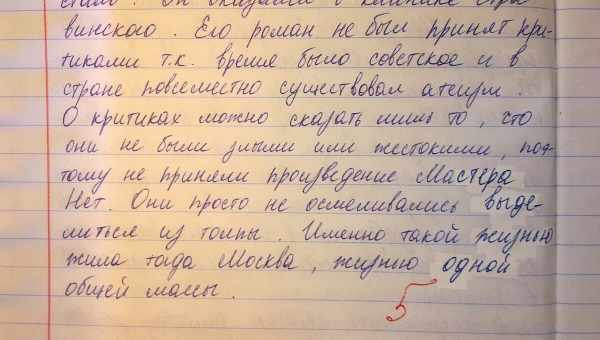 стало. Он оказался в клинике Стра-
винского. Его роман не был принят кри-
тиками т.к. время было советское и в
стране повсеместно существовал атеизм.
О критиках можно сказать лишь то, что
они не были злыми или жестокими, поэ-
тому не приняли произведение Мастера
Нет. Они просто не осмеливались выде-
литься из толпы. Именно такой жизнью
жила тогда Москва, жизнью одной
общей массы.
5